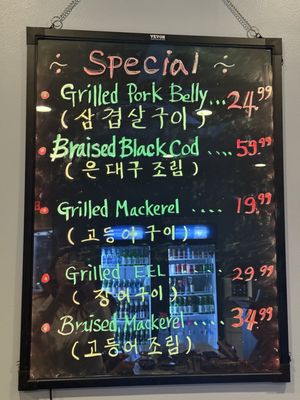 VEVOR
÷ Special ÷
① Grilled Pork Belly... 24.99
(삼겹살구이)
② Braised Black Cod .... 59.99
(은대구 조림)
③ Grilled Mackerel ..... 19.99
(고등어구이)
④ Grilled EEL ..... 29.99
(장어구이)
⑤ Braised Mackerel ..... 34.99
(고등어 조림)